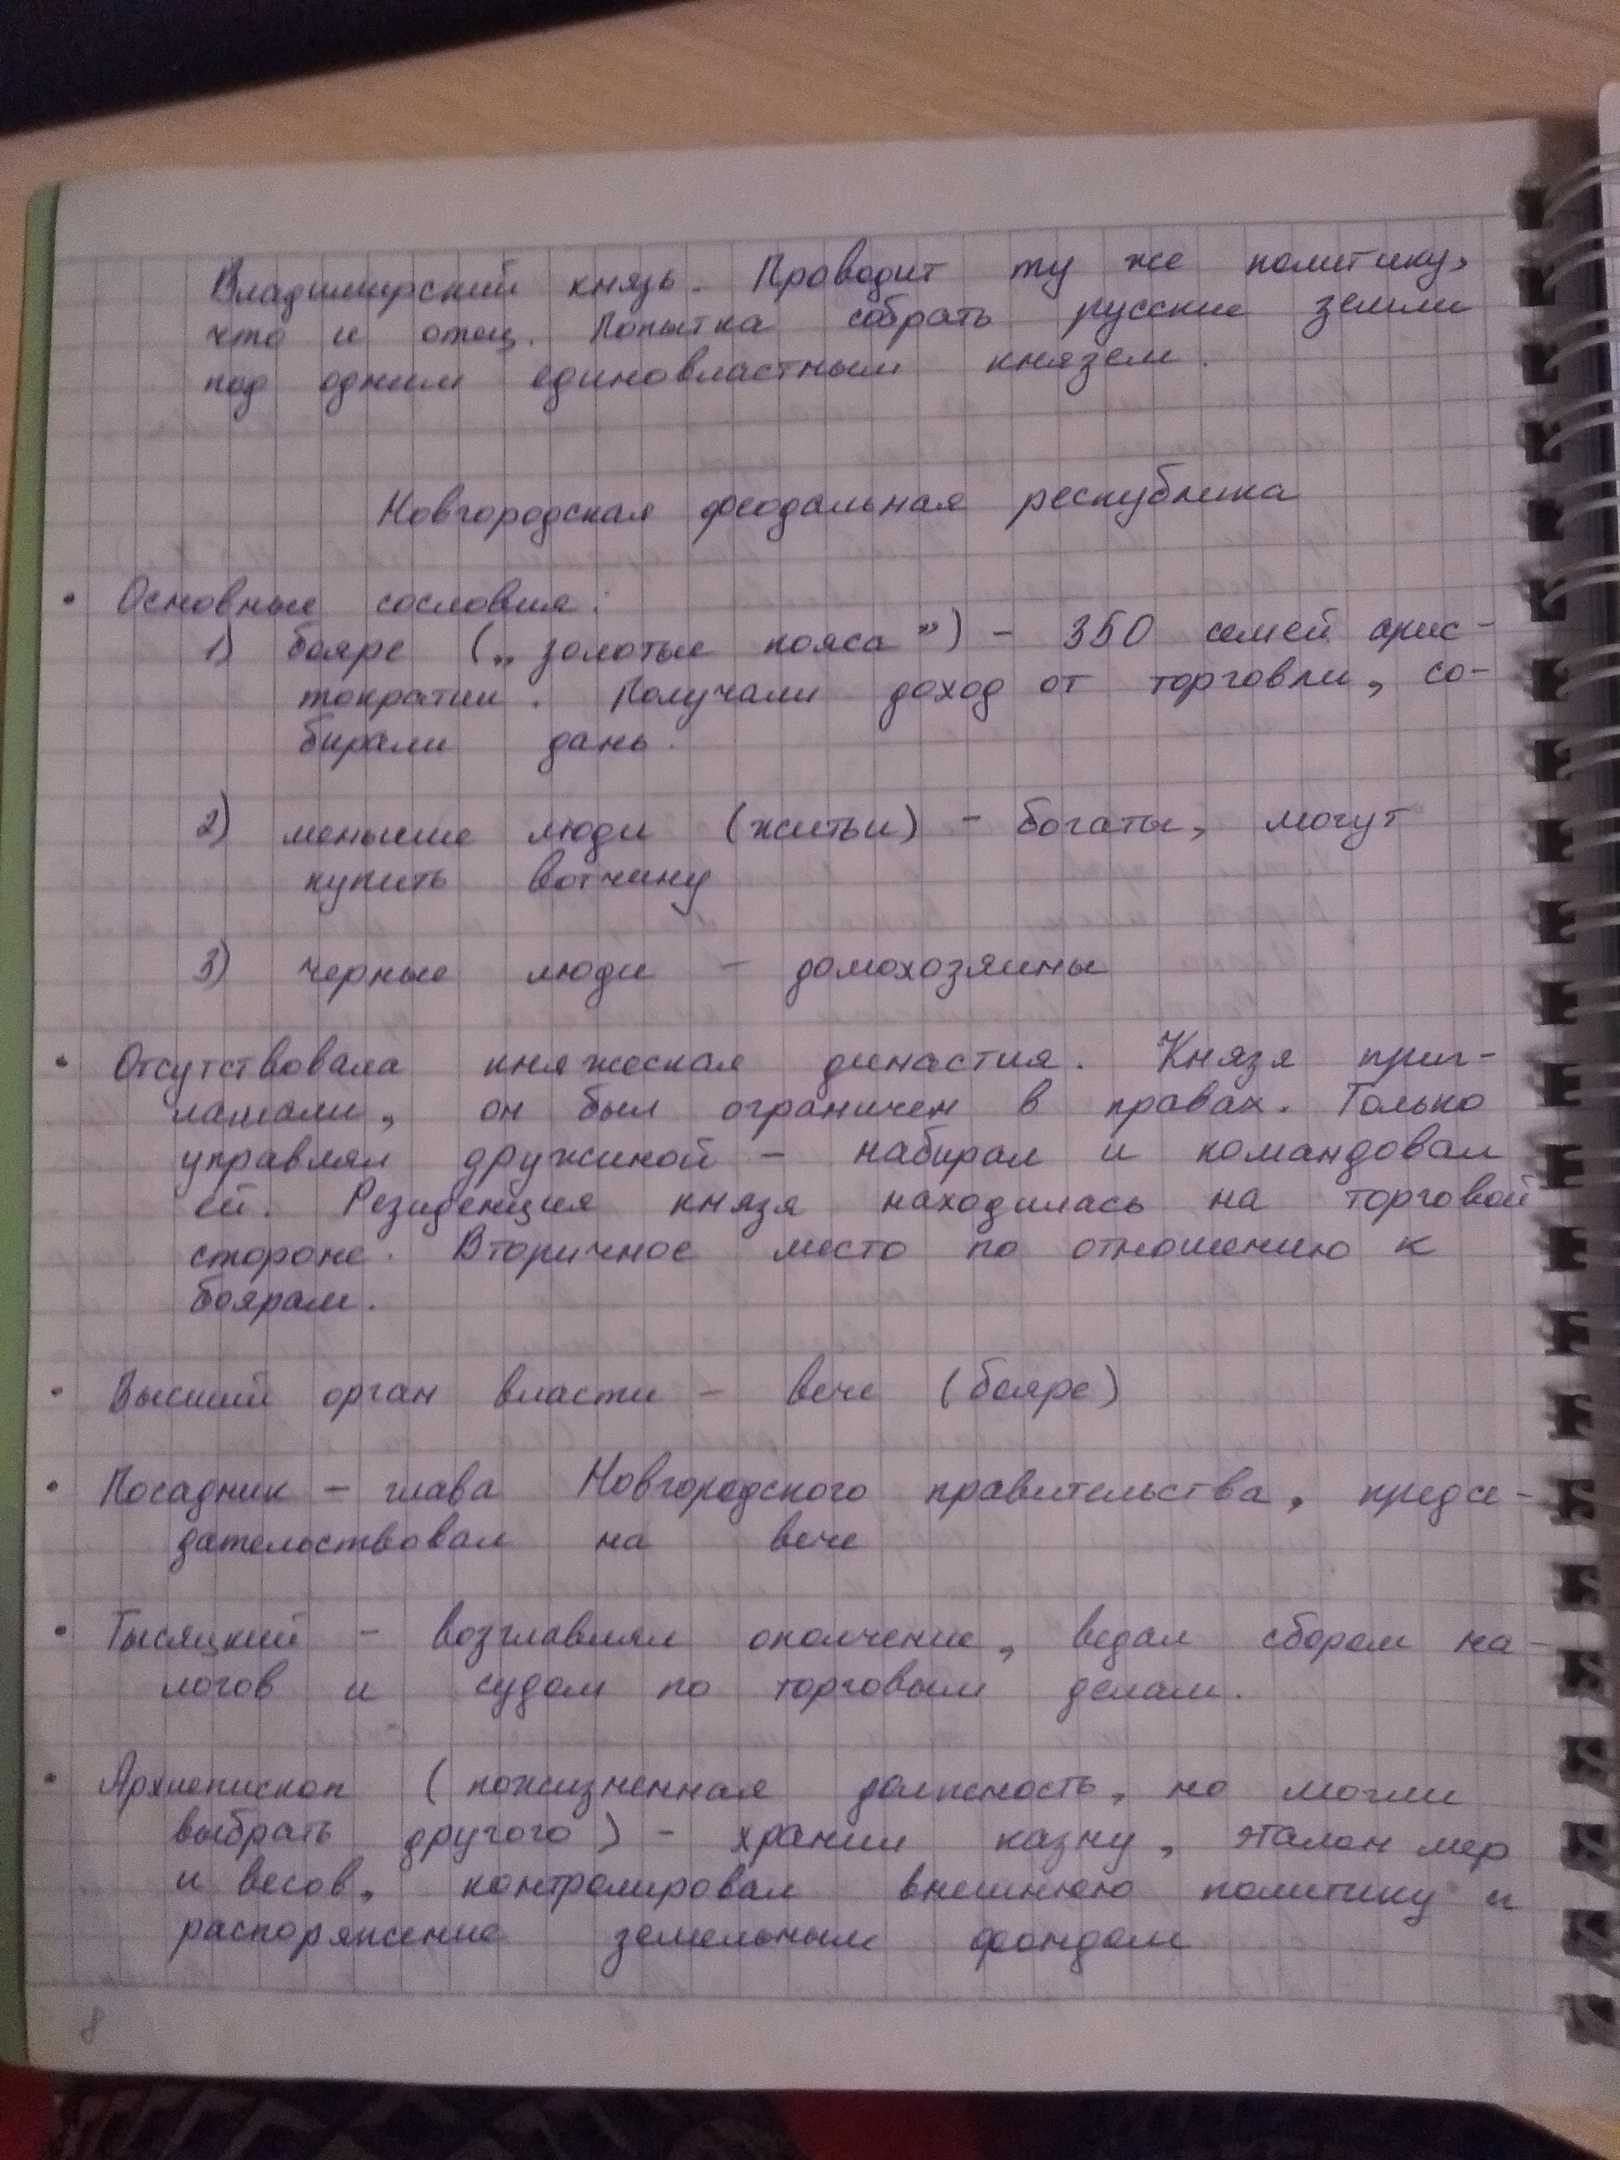 Владимирский князь. Проводит ту же политику,
что и отец. Попытка собрать русские земли
под одним единовластным князем.
Новгородская феодальная республика
• Основные сословия:
1) бояре („золотые пояса”) - 350 семей арис-
тократии. Получали доход от торговли, со-
бирали дань.
2) меньшие люди (житьи) - богаты, могут
купить вотчину
3) черные люди - домохозяины
• Отсутствовала княжеская династия. Князя приг-
лашали, он был ограничен в правах. Только
управлял дружиной - набирал и командовал
ей. Резиденция князя находилась на торговой
стороне. Вторичное место по отношению к
боярам.
• Высший орган власти - вече (бояре)
• Посадник - глава Новгородского правительства, предсе-
дательствовал на вече
• Тысяцкий - возглавлял ополчение, ведал сбором на-
логов и судом по торговым делам.
• Архиепископ (пожизненная должность, но могли
выбрать другого) - хранил казну, эталон мер
и весов, контролировал внешнюю политику и
распоряжение земельным фондом
8